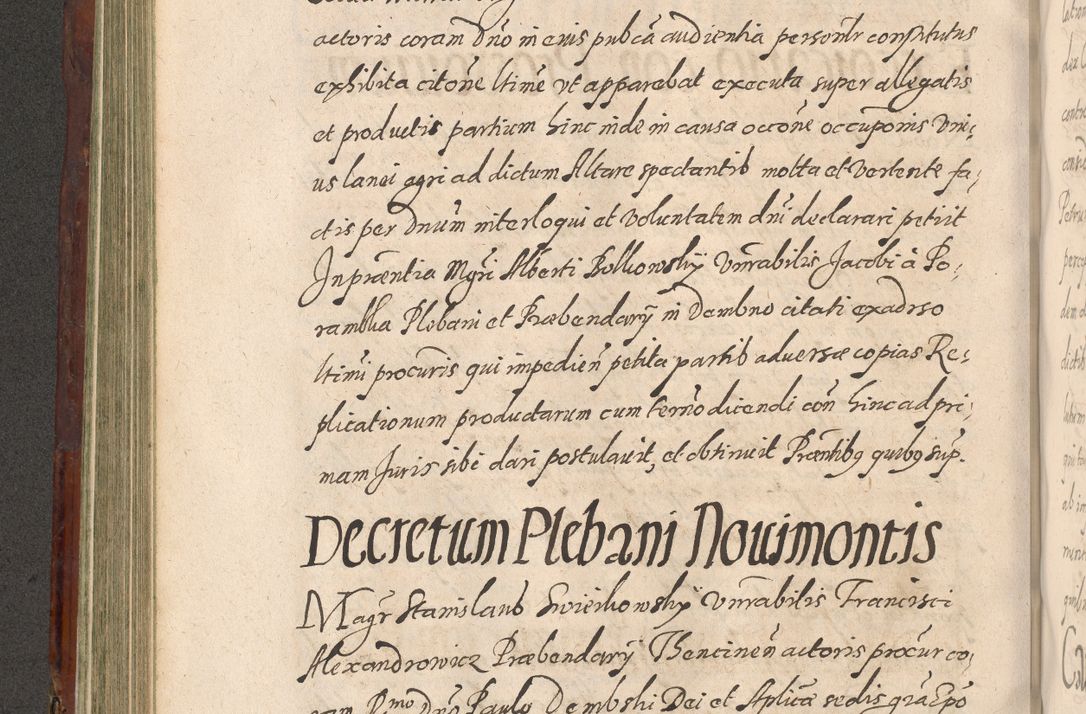 actoris coram dño in eius pubcâ audientia personlr constitutus
exhibita citoñe ltime vt apparebat executa super allegatis
et productis partium hinc inde in causa occoñe occuponis vni,
us lanei agri ad dictum Altare spectantib motta et vertente fa,
ctis per Dnum interloqui et voluntatem dni declarari petiit
In præntia Mgri Alberti Bolkowskÿ Vnrabilis Jacobi à Po,
rambka Plebani et Præbendarÿ in Dembno citati ex adrso
ltimi procuris qui impedien petita partib adversæ copias Re,
plicationum productarum cum terno dicendi con hinc ad pri,
mam Juris sibi dari postulauit, et obtinuit Præntibq quibq sup.
Decretum Plebani Nouimontis
Magr Stanislaus Swierkowskÿ Vnrabilis Francisci
Alexandrowicz Præbendarÿ Thencinen actoris procur co,
ram Rmo dño Paulo Dembski Dei et Aplicæ sedis grã Epo